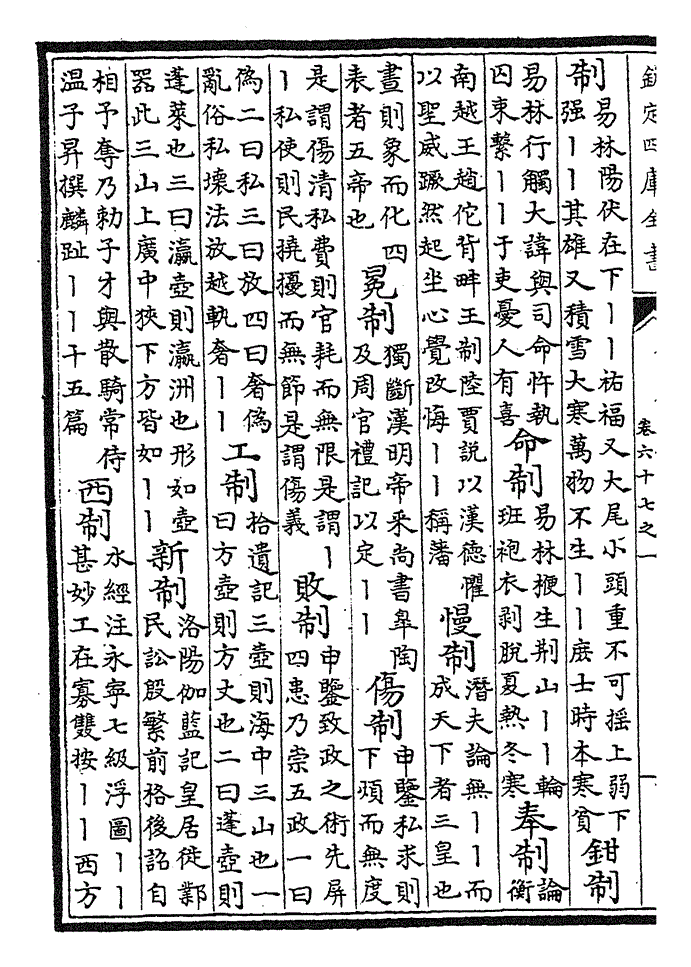 欽定四庫全書 卷六十七之一 一
制易林陽伏在下丨丨祐福又大尾小頭重不可揺上弱下强丨丨其雄又積雪大寒萬物不生丨丨庶士時本寒貧鉗制
易林行觸大諱與司命忤執囚束繫丨丨于吏憂人有喜命制易林梗生荆山丨丨輪班袍衣剥脱夏熱冬寒奉制論衡
南越王趙佗背畔王制陸賈說以漢德懼以聖威蹶然起坐心覺改悔丨丨稱藩慢制潜夫論無丨丨而成天下者三皇也
畫則象而化四表者五帝也冕制獨斷漢明帝采尚書臯陶及周官禮記以定丨丨傷制申鑒私求則下煩而無度
是謂傷清私費則官耗而無限是謂丨丨私使則民撓擾而無節是謂傷義敗制申鑒致政之術先屏四患乃崇五政一曰
偽二曰私三曰放四曰奢偽亂俗私壞法放越軌奢丨丨工制拾遺記三壺則海中三山也一曰方壺則方丈也二曰蓬壺則
蓬萊也三曰瀛壺則瀛洲也形如壺器此三山上廣中狹下方皆如丨丨新制洛陽伽藍記皇居徙鄴民訟殷繁前格後詔自
相予奪乃勅子才與散騎常侍温子昇撰麟趾丨丨十五篇西制水經注永寧七級浮圖丨丨甚妙工在寡雙按丨丨西方